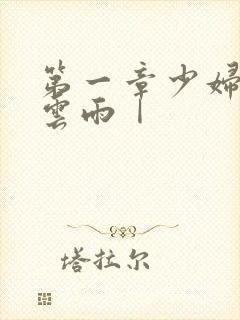 第一章少婦
雲雨｜
塔拉尔